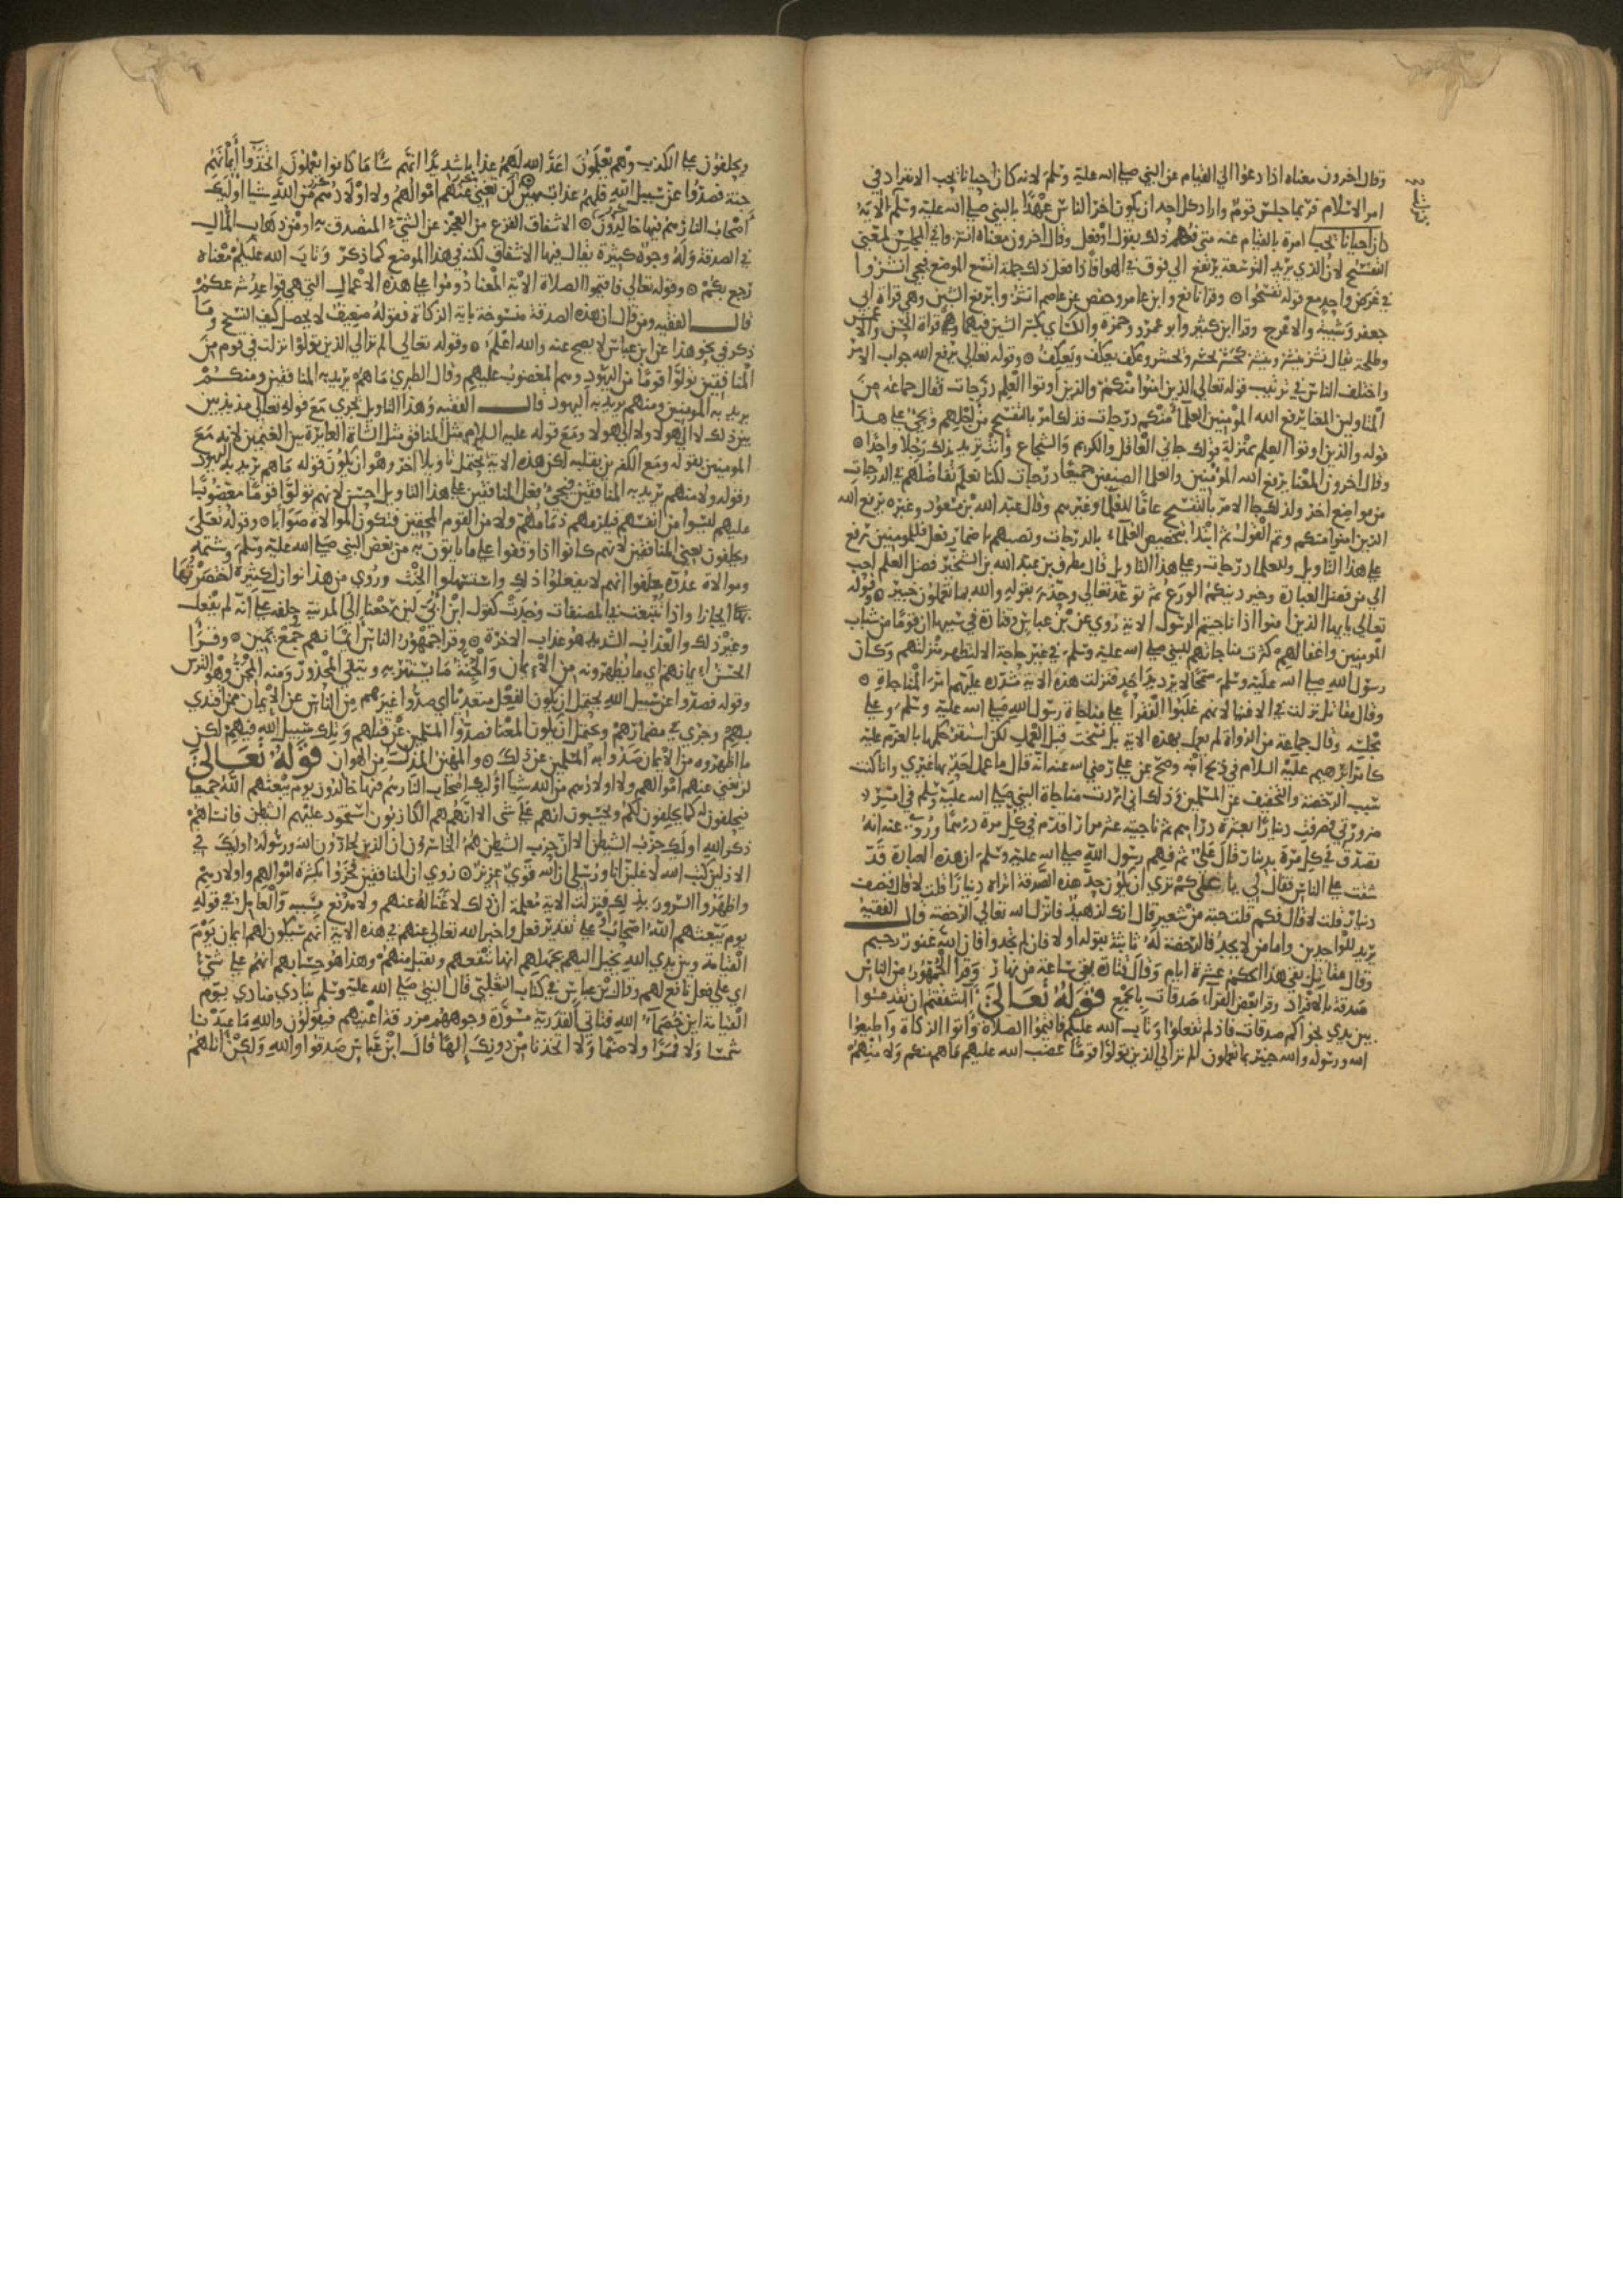 وقال اخرون معناه اذا دعوا الي القيام عن النبي صلي الله عليه وسلم لانه كان احيانا يحب الانفراد في
امر الاسلام فربما جلس قوم واراد كل احد ان يكون اخر الناس عهدا بالنبي صلي الله عليه وسلم الاية
امره بالقيام عنه متي فهم ذلك بقول او فعل وقال اخرون معناه انشزوا في المجلس لمعني
التفسح لان الذي يريد التوسعة يرتفع الي فوق في الهوا فاذا فعل ذلك جملة اتسع الموضع فيجي انشزوا
في غرض واحد مع قوله تفسحوا وقرا نافع وابن عامر وحفص عن عاصم انشزوا برفع الشين وهي قراة ابي
جعفر وشيبة والاعرج وقرا ابن كثير وابو عمرو وحمزة والكساي بكسر الشين فيهما وهي قراة الحسن والاعمش
وطلحة يقال نشز ينشز وينشز كحشر يحشر ويحشر وعكف يعكف ويعكف وقوله تعالي يرفع الله جواب الامر
واختلف الناس في ترتيب قوله تعالي الذين امنوا منكم والذين اوتوا العلم درجات فقال جماعة من
المتاولين المعنا يرفع الله المومنين العلما منكم درجات فذلك امر بالتفسح من اجلهم ويجي علي هذا
قوله والذين اوتوا العلم بمنزلة قولك جاني العاقل والكريم والشجاع وانت تريد بذلك رجلا واحدا
وقال اخرون المعنا يرفع الله المومنين والعلما الصنفين جميعا درجات لكنا نعلم تفاضلهم في الدرجات
من مواضع اخر ولذلك جا الامر بالتفسح عاما للعلما وغيرهم وقال عبد الله بن مسعود وغيره يرفع الله
الذين امنوا منكم وتم القول ثم ابتدا بتخصيص العلماء بالدرجات ونصبهم باضمار فعل فللمومنين رفع
علي هذا التاويل وللعلما درجات وعلي هذا التاويل قال مطرف بن عبد الله بن الشخير فضل العلم احب
الي من فضل العبادة وخير دينكم الورع ثم توعد تعالي وحذر بقوله والله بما تعملون خبير وقوله
تعالي يايها الذين امنوا اذا ناجيتم الرسول الاية روي عن بن عباس وقتادة في سببها ان قوما من شباب
المومنين واغفالهم كثرت مناجاتهم للنبي صلي الله عليه وسلم في غير حاجة الا لتظهر منزلتهم وكان
رسول الله صلي الله عليه وسلم سمحا لا يرد احدا فنزلت هذه الاية مشددة عليهم امر المناجاة
وقال مقاتل نزلت في الاغنيا لانهم غلبوا الفقرا علي مناجاة رسول الله صلي الله عليه وسلم وعلي
مجلسه وقال جماعة من الرواة لم يعمل بهذه الاية بل نسخت قبل العمل لكن استقر حكمها بالعزم عليه
كامر ابرهيم عليه السلام في ذبح ابنه وصح عن علي رضي الله عنه انه قال ما عمل احد بها غيري وانا كنت
سبب الرخصة والتخفيف عن المسلمين وذلك اني اردت مناجاة النبي صلي الله عليه وسلم في امر
ضروري فصرفت دينارا بعشرة دراهم ثم ناجيته عشر مرار اقدم في كل مرة درهما وروي عنه انه
تصدق في كل مرة بدينار قال علي ثم فهم رسول الله صلي الله عليه وسلم ان هذه العبادة قد
شقت علي الناس فقال لي يا علي كم تري ان يكون حد هذه الصدقة اتراه دينارا قلت لا قال فنصف
دينار قلت لا قال فكم قلت حبة من شعير قال انك لزهيد فانزل الله تعالي الرخصة قال الفقيه
يريد للواجدين واما من لا يجد فالرخصة له ثابتة بقوله اولا فان لم تجدوا فان الله غفور رحيم
وقال مقاتل بقي هذا الحكم عشرة ايام وقال قتادة بقي ساعة من نهار وقرا الجمهور من الناس
صدقة بالافراد وقرا بعض القراء صدقات بالجمع قوله تعالي ااشفقتم ان تقدموا
بين يدي نجواكم صدقات فاذ لم تفعلوا وتاب الله عليكم فاقيموا الصلاة واتوا الزكاة واطيعوا
الله ورسوله والله خبير بما تعملون الم تر الي الذين تولوا قوما غضب الله عليهم ما هم منكم ولا منهم
ويحلفون علي الكذب وهم يعلمون اعد الله لهم عذابا شديدا انهم سا ما كانوا يعملون اتخذوا ايمانهم
جنة فصدوا عن سبيل الله فلهم عذاب مهين لن تغني عنهم اموالهم ولا اولادهم من الله شيا اوليك
اصحاب النار هم فيها خالدون الاشفاق الفزع من العجز عن الشيء المتصدق به او من ذهاب المال
في الصدقة وله وجوه كثيرة يقال فيها الاشفاق لكنه في هذا الموضع كما ذكر وتاب الله عليكم معناه
رجع بكم وقوله تعالي فاقيموا الصلاة الاية المعنا دوموا علي هذه الاعمال التي هي قواعد شرعكم
قال الفقيه ومن قال ان هذه الصدقة منسوخة باية الزكاة فقوله ضعيف لا يحصل كيف النسخ وما
ذكر في نحو هذا عن ابن عباس لا يصح عنه والله اعلم وقوله تعالي الم تر الي الذين تولوا نزلت في قوم من
المنافقين تولوا قوما من اليهود وهم المغضوب عليهم وقال الطبري ما هم يريد به المنافقين ومنكم
يريد به المومنين ومنهم يريد به اليهود قال الفقيه وهذا التاويل يجري مع قوله تعالي مذبذبين
بين ذلك لا الي هولا ولا الي هولا ومع قوله عليه السلام مثل المنافق مثل الشاة العايرة بين الغنمين لانه مع
المومنين بقوله ومع الكافرين بقلبه لكن هذه الاية تحتمل تاويلا اخر وهو ان يكون قوله ما هم يريد به اليهود
وقوله ولا منهم يريد به المنافقين فيجي فعل المنافقين علي هذا التاويل احسن لانهم تولوا قوما مغضوبا
عليهم ليسوا من انفسهم فيلزمهم ذمامهم ولا من القوم المحقين فتكون الموالاة صوابا وقوله تعالي
ويحلفون يعني المنافقين لانهم كانوا اذا وقفوا علي ما ياتون به من بغض النبي صلي الله عليه وسلم وشتمه
وموالاة عدوه حلفوا انهم لا يفعلوا ذلك واستسهلوا الحنث وروي من هذا نوازل كثيرة اختصرتها
ايجازا واذا تتبعت في المصنفات وجدت كقول ابن ابي لين رجعنا الي المدينة وحلفه علي انه لم يفعل
وغير ذلك والعذاب الشديد هو عذاب الاخرة وقرا جمهور الناس ايمانهم جمع يمين وقرا
الحسن ايمانهم اي ما يظهرونه من الايمان والجنة ما يستتر به ويتقي المحذور ومنه المجن وهو الترس
وقوله فصدوا عن سبيل الله يحتمل ان يكون الفعل متعديا اي صدوا غيرهم من الناس عن الايمان ممن اقتدي
بهم وجري في مضمارهم ويحتمل ان يكون المعنا فصدوا المسلمين عن قتلهم وتلك سبيل الله فيهم لكن
ما اظهروه من الايمان صدوا به المسلمين عن ذلك والمهين المذل من الهوان قوله تعالي
لن تغني عنهم اموالهم ولا اولادهم من الله شيا اوليك اصحاب النار هم فيها خالدون يوم يبعثهم الله جميعا
فيحلفون له كما يحلفون لكم ويحسبون انهم علي شي الا انهم هم الكاذبون استحوذ عليهم الشيطان فانساهم
ذكر الله اوليك حزب الشيطن الا ان حزب الشيطن هم الخاسرون ان الذين يحادون الله ورسوله اوليك في
الاذلين كتب الله لاغلبن انا ورسلي ان الله قوي عزيز روي ان المنافقين فخروا بكثرة اموالهم واولادهم
واظهروا السرور بذلك فنزلت الاية معلمة ان ذلك لا غنا له عنهم ولا مدفع بسببه والعامل في قوله
يوم يبعثهم الله اصحاب علي تقدير فعل واخبر الله تعالي عنهم في هذه الاية انهم ستكون لهم ايمان يوم
القيامة وبين يدي الله يخيل اليهم بجهلهم انها تنفعهم وتقبل منهم وهذا هو حسابهم انهم علي شي
اي علي فعل نافع لهم وقال بن عباس في كتاب الثعلبي قال النبي صلي الله عليه وسلم ينادي منادي يوم
القيامة اين خصماء الله فتاتي القدرية مسودة وجوههم مزرقة اعينهم فيقولون والله ما عبدنا
شمسا ولا قمرا ولا صنما ولا اتخذنا من دونك الها قال ابن عباس صدقوا والله ولكن اتاهم